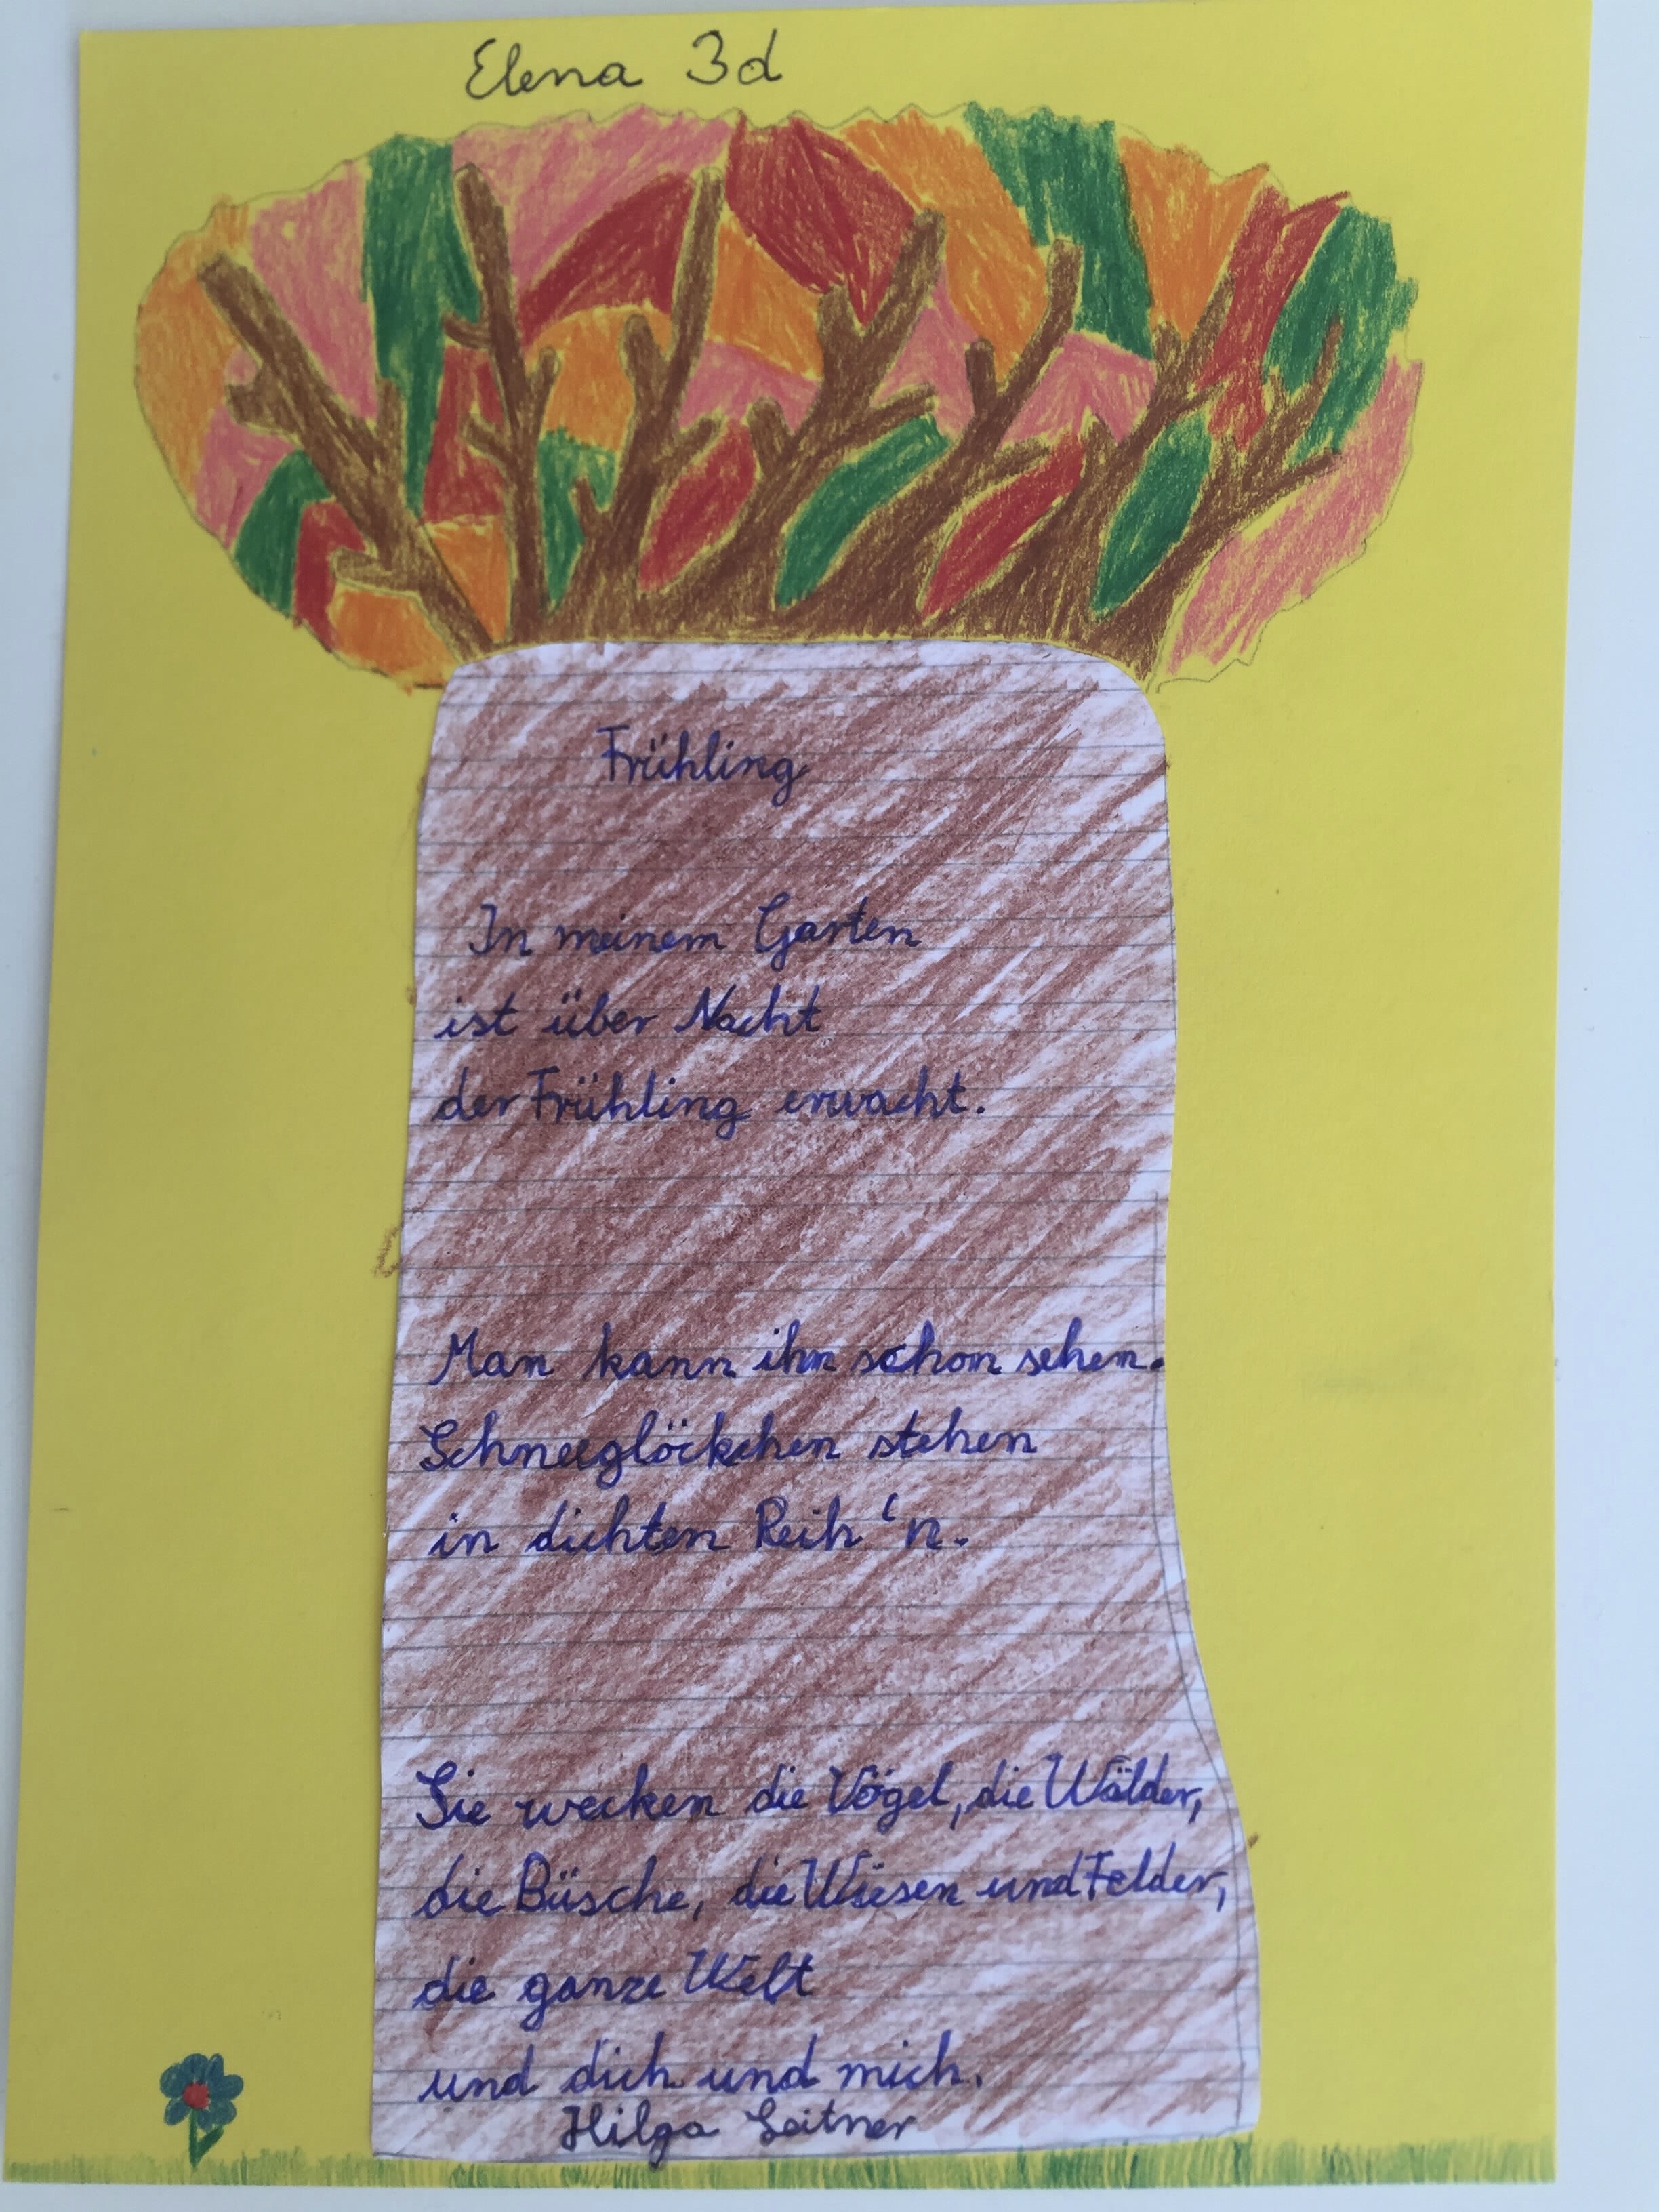 Elena 3d
Frühling
In meinem Garten
ist über Nacht
der Frühling erwacht.
Man kann ihn schon sehen.
Schneeglöckchen stehen
in dichten Reih'n.
Sie wecken die Vögel, die Wälder,
die Büsche, die Wiesen und Felder,
die ganze Welt
und dich und mich.
Hilga Leitner